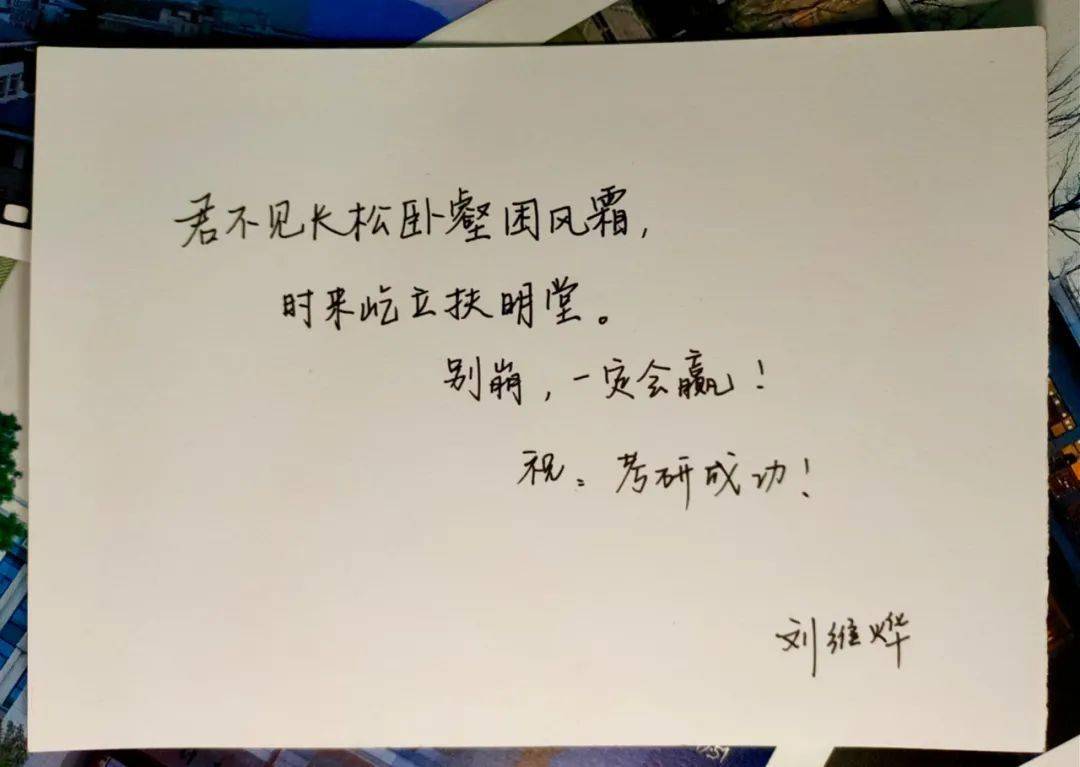 君不见长松卧壑困风霜,
时来屹立扶明堂。
别崩,一定会赢!
祝:考研成功!
刘维烨